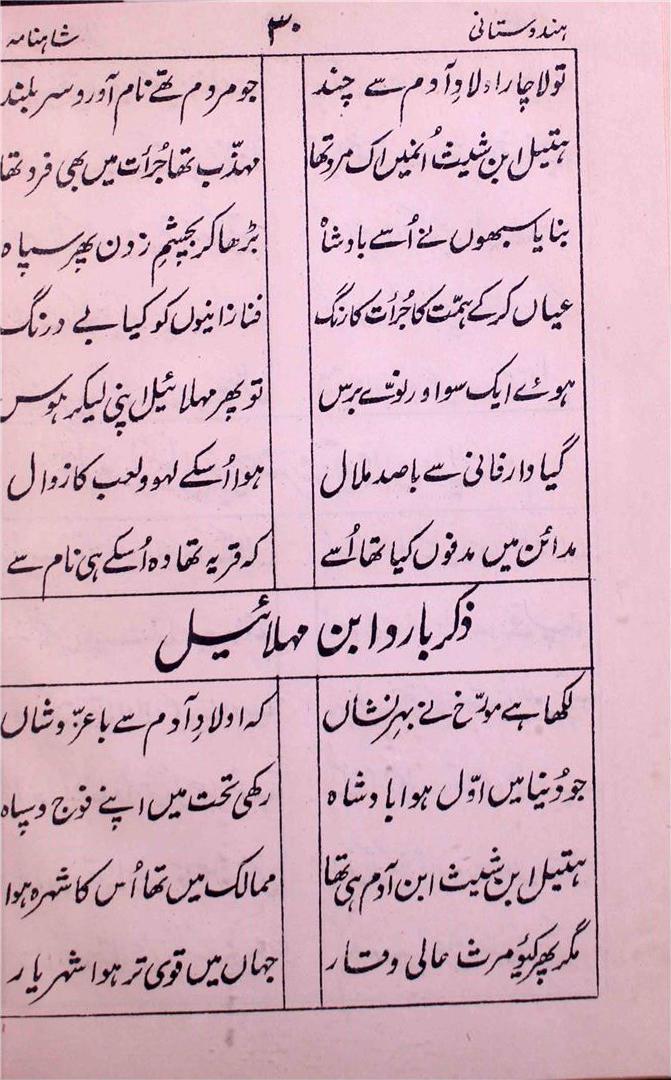 ہندوستانی ۳۰ شاہنامہ
تو لاچار اولادِ آدم سے چند جو مروم تھے نام آور و سر بلند
ہتیل ابن شیث اُنمیں اک مرد تھا مہذّب تھا جُرأت میں بھی فرد تھا
بنایا سبھوں نے اُسے بادشاہ بڑھا کر بچشمِ زدن پھر سپاہ
عیاں کر کے ہمّت کا جُرأت کا رنگ فنا زانیوں کو کیا بے درنگ
ہوئے ایک سو اور نوّے برس تو پھر مہلائیل اپنی لیکر ہوس
گیا دارِ فانی سے با صد ملال ہوا اُسکے لہو و لعب کا زوال
مدائن میں مدفوں کیا تھا اُسے کہ قریہ تھا وہ اُسکے ہی نام سے
ذکر بارو ابن مہلائیل
لکھا ہے مورّخ نے بہرِ نشاں کہ اولادِ آدم سے با عزّ و شاں
جو دُنیا میں اوّل ہوا بادشاہ رکھی تحت میں اپنے فوج و سپاہ
ہتیل ابن شیث ابن آدم ہی تھا ممالک میں تھا اُس کا شہرہ ہوا
مگر پھر کیومرث عالی وقار جہاں میں قوی تر ہوا شہریار